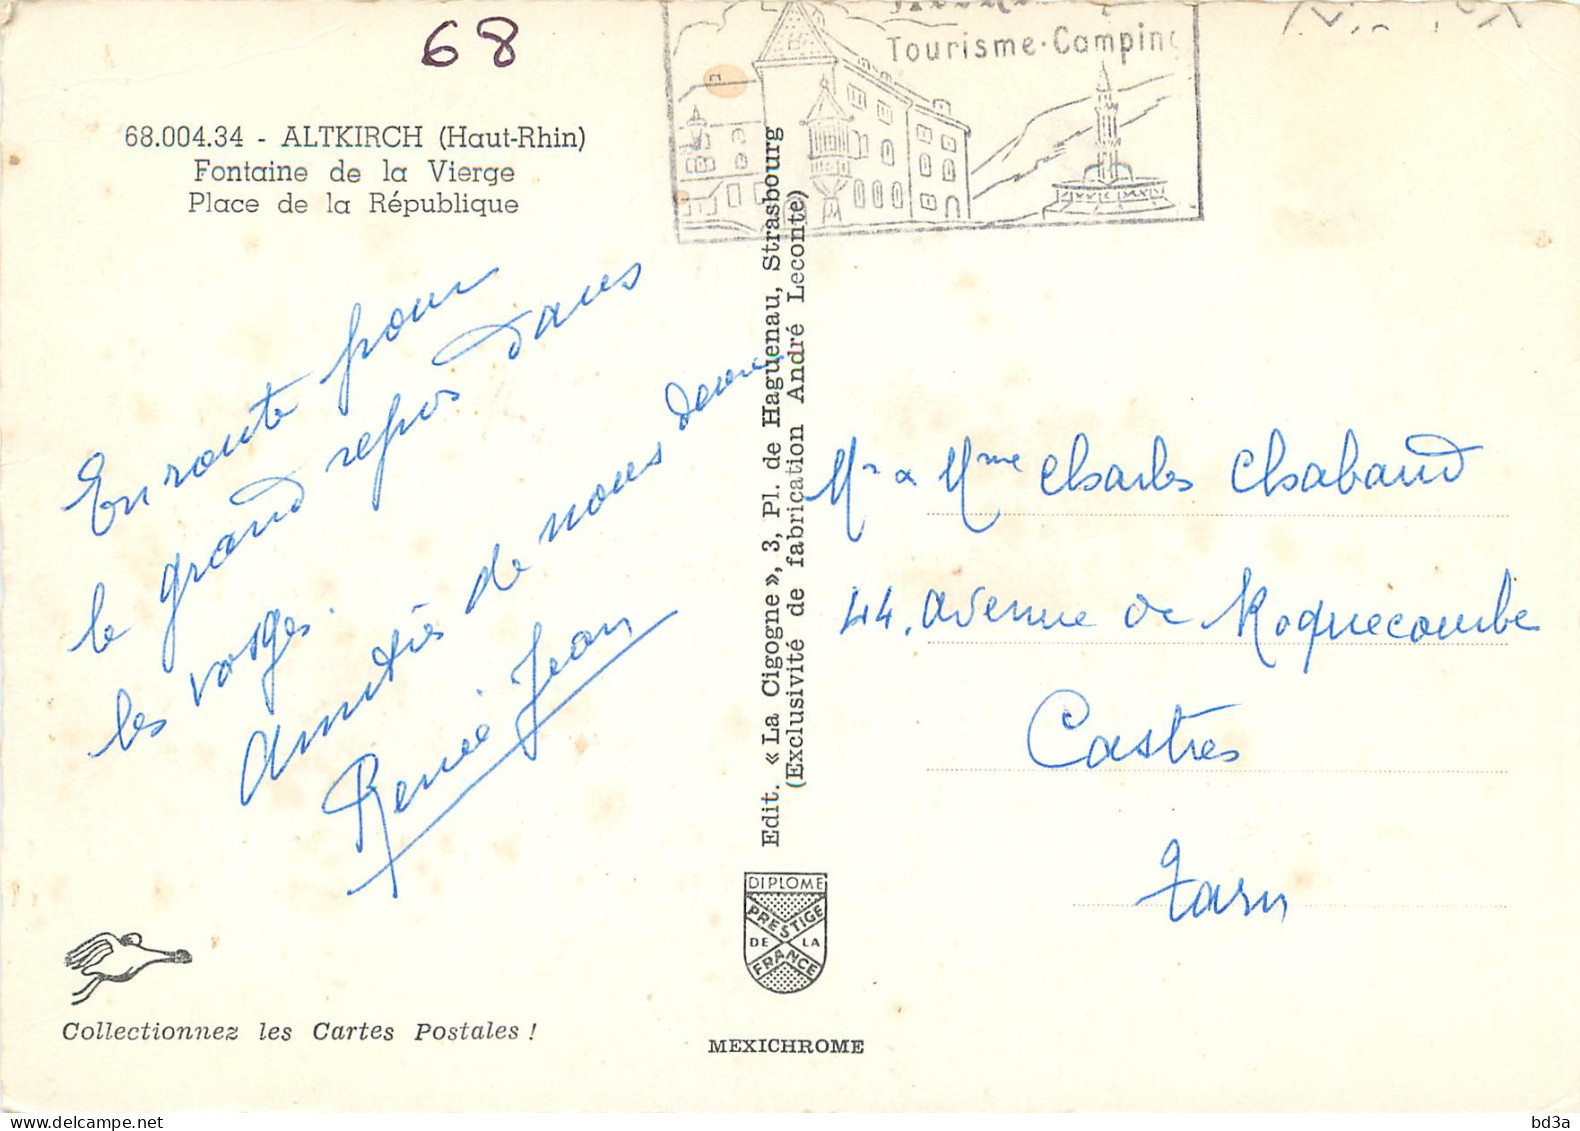 68
Tourisme·Camping
68.004.34 - ALTKIRCH (Haut-Rhin)
Fontaine de la Vierge
Place de la République
En route pour
le grand repos dans
les vosges.
Amitiés de nous deux
Renée Jean
Edit. « La Cigogne », 3, Pl. de Haguenau, Strasbourg
(Exclusivité de fabrication André Leconte)
Mr & Mme Charles Chabaud
44, avenue de Roquecourbe
Castres
Tarn
DIPLOME
PRESTIGE
DE LA
FRANCE
Collectionnez les Cartes Postales !
MEXICHROME
bd3a